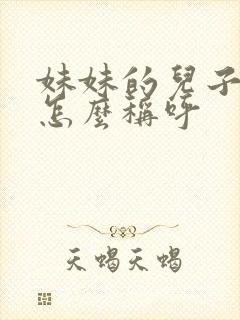 妹妹的兒子
怎麼稱呼
天蝎天蝎